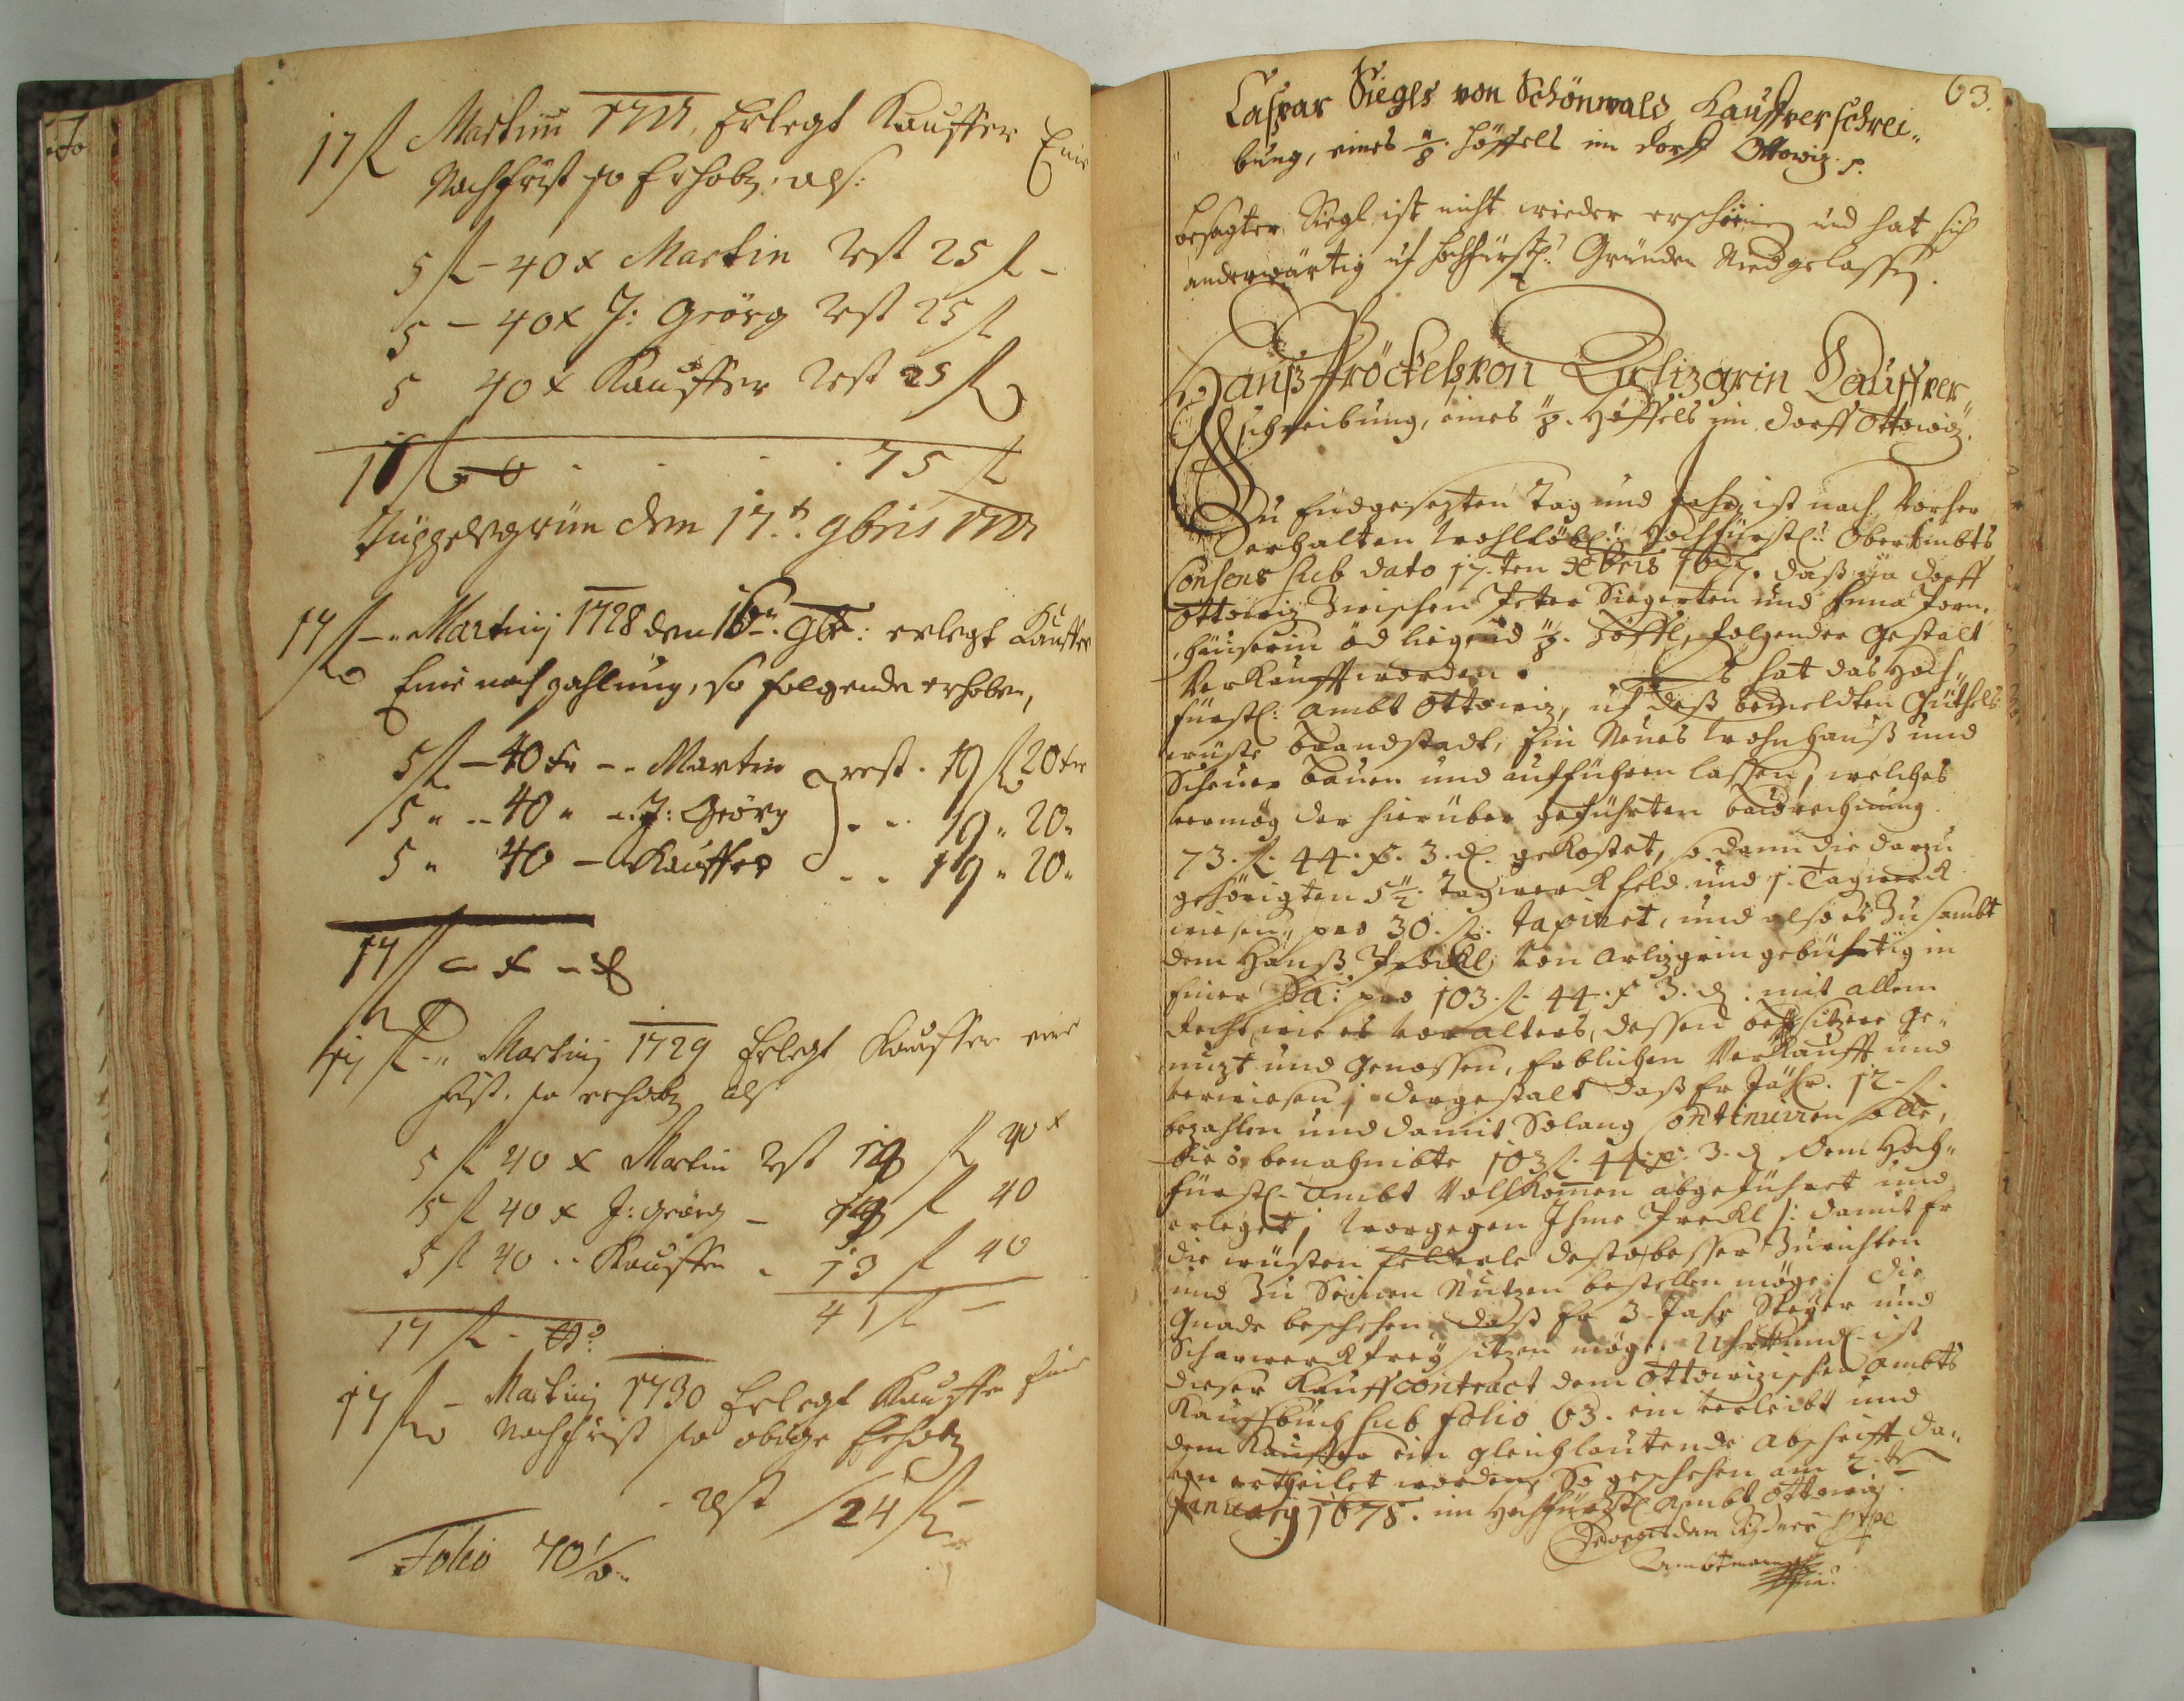 17 fl Martini 1727, Erlegt Kauffer Eine
Nachfrist so Erhoben: als:
5 fl – 40 x Martin Rest 25 fl –
5 – 40 x J: Geörg Rest 25 fl
5 40 x Kauffer Rest 25 fl
17 fl 75 fl
den 17.t 9bris 1727
17 fl – Martinj 1728 den 9br: erlegt Kauffer
Eine nachzahlung, so folgende erhoben,
5 fl – 40 xr – Martin rest. 19 fl 20 xr
5 „ 40 „ J: Geörg 19 „ 20 „
5 „ 40 – Kauffer 19 „ 20 „
17 fl – x – d
17 fl – „ Martinj 1729 Erlegt Kauffer eine
frist, so erhoben als
5 fl 40 x Martin Rest fl 40 x
5 fl 40 x J: Geörg – fl 40
5 fl 40 „ Kauffer „ 13 fl 40
41 fl –
17 fl –
17 fl – Martinj 1730 Erlegt Kauffer Eine
Nachfrist so obige Erhoben
rest 24 fl
Folio 70
63.
Caspar Siegls von Schönwald, Kauffverschrei„
bung, eines 1/8. Höffels im dorff Ottowiz. p.
besagter Siegl ist nicht wieder erschienen und hat sich
anderwärtig uf hochfürstl: Gründen Niedgelassen.
Hanß Pröckels von Arlizgrin Kauffver„
schreibung, eines 1/8. Höffels im dorff Ottowiz.
Zu Endgesezten Tag und Jahr, ist nach Vorher
erhalten Wohllöbl: Hochfürstl: OberAmbts
Consens sub dato 17.ten Xbris 1677. daß im dorff
Ottowiz Zwischen Peter und Anna
öd liegend 1/8. Höffl, folgender gestalt
Verkaufft worden. Es hat das Hoch„
fürstl: Ambt Ottowiz, uf deß bemeldten Güthels
wüste brandstadt, Ein Neues Wohn Hauß und
Scheuer bauen und aufführen lassen, welches
vermög der hierüber geführten baurechnung
73. fl. 44. x. 3. d. gekostet, so dann die darzu
gehörigten 5 1/2. Tagwerck feld und 1. Tagwerck
wiesen, pro 30. fl. taxiret, und also es Zu sambt
dem Hanß Pröckl, von Arlizgrin gebührtig in
Einer Sa: pro 103. fl. 44. x 3. d. mit allem
Recht, wie es vor alters, dessen besitzere ge„
nuzt und genossen, Erblichen Verkaufft und
verwiesen, dergestalt daß Er Jährl. 12. fl.
bezahlen und damit Solang Continuiren solle,
bis obenahmbte 103 fl. 44. x. 3. d dem Hoch„
fürstl. Ambt Vollkomen abgeführet und
erleget, worgegen Ihme Preckl /: damit Er
die wüsten felder destobesser Zurichten
und Zu Seinen Nutzen bestellen möge :/ die
Gnade beschehen, daß Er 3. Jahr Steyer und
Scharwerck frey sitzen möge. Uhrkundl. ist
dieser Kauffcontract dem Ottowizischen Ambts
Kauffbuch sub folio 63. ein verleibt und
dem Kauffer ein gleichlautende Abschrifft da„
von ertheilet worden, So geschehen am 2.t
Januarij 1678. im Hochfürstl Ambt Ottowiz
Ambtmann